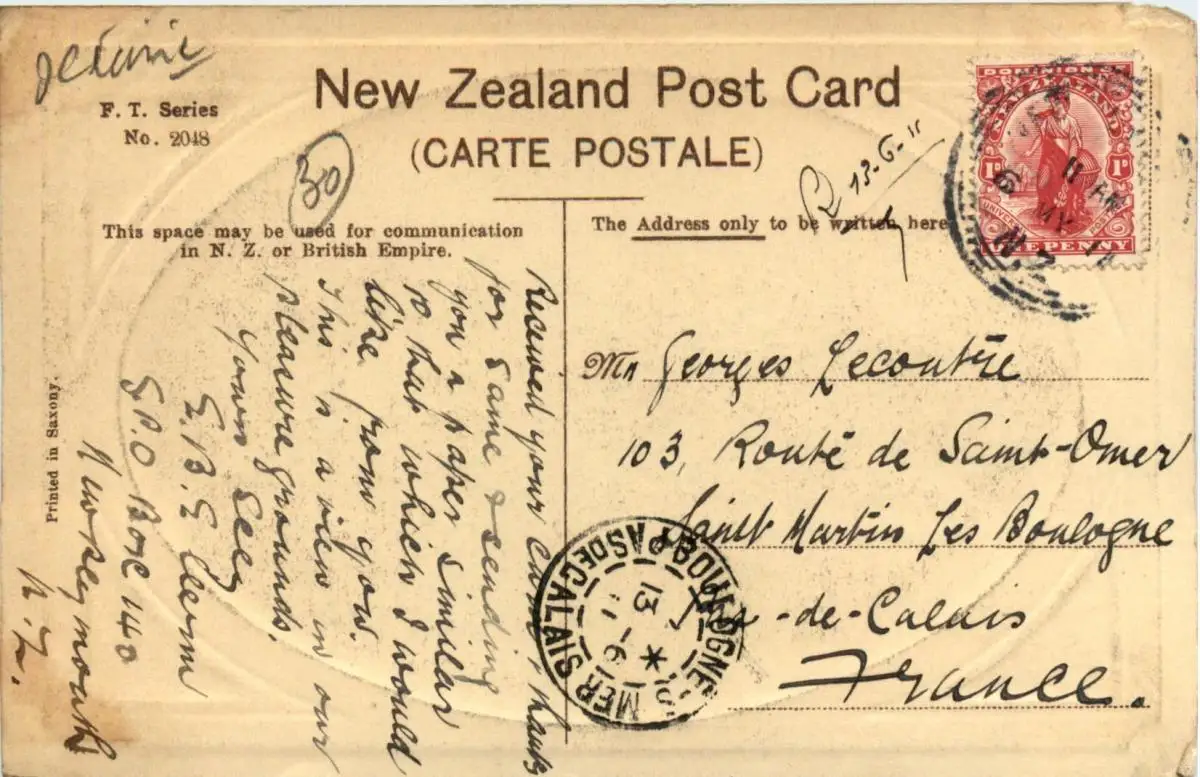 F. T. Series
No. 2048
New Zealand Post Card
(CARTE POSTALE)
30
R 13-6-11
This space may be used for communication
in N. Z. or British Empire.
The Address only to be written here
DOMINION OF
NEW ZEALAND
1D 1D
UNIVERSAL POSTAGE
ONE PENNY
11 AM
6 MY 11
N.Z
Received your card thanks
for same & sending
you a paper similar
to that which I would
like from you.
This is a view in our
pleasure grounds.
Yours
G.P.O Box 140
N.Z.
Mr Georges Lecoutre
103, Route de Saint-Omer
Saint Martin Les Boulogne
Pas-de-Calais
France.
BOULOGNE S. MER
PAS DE CALAIS
13 -6
11
Printed in Saxony.